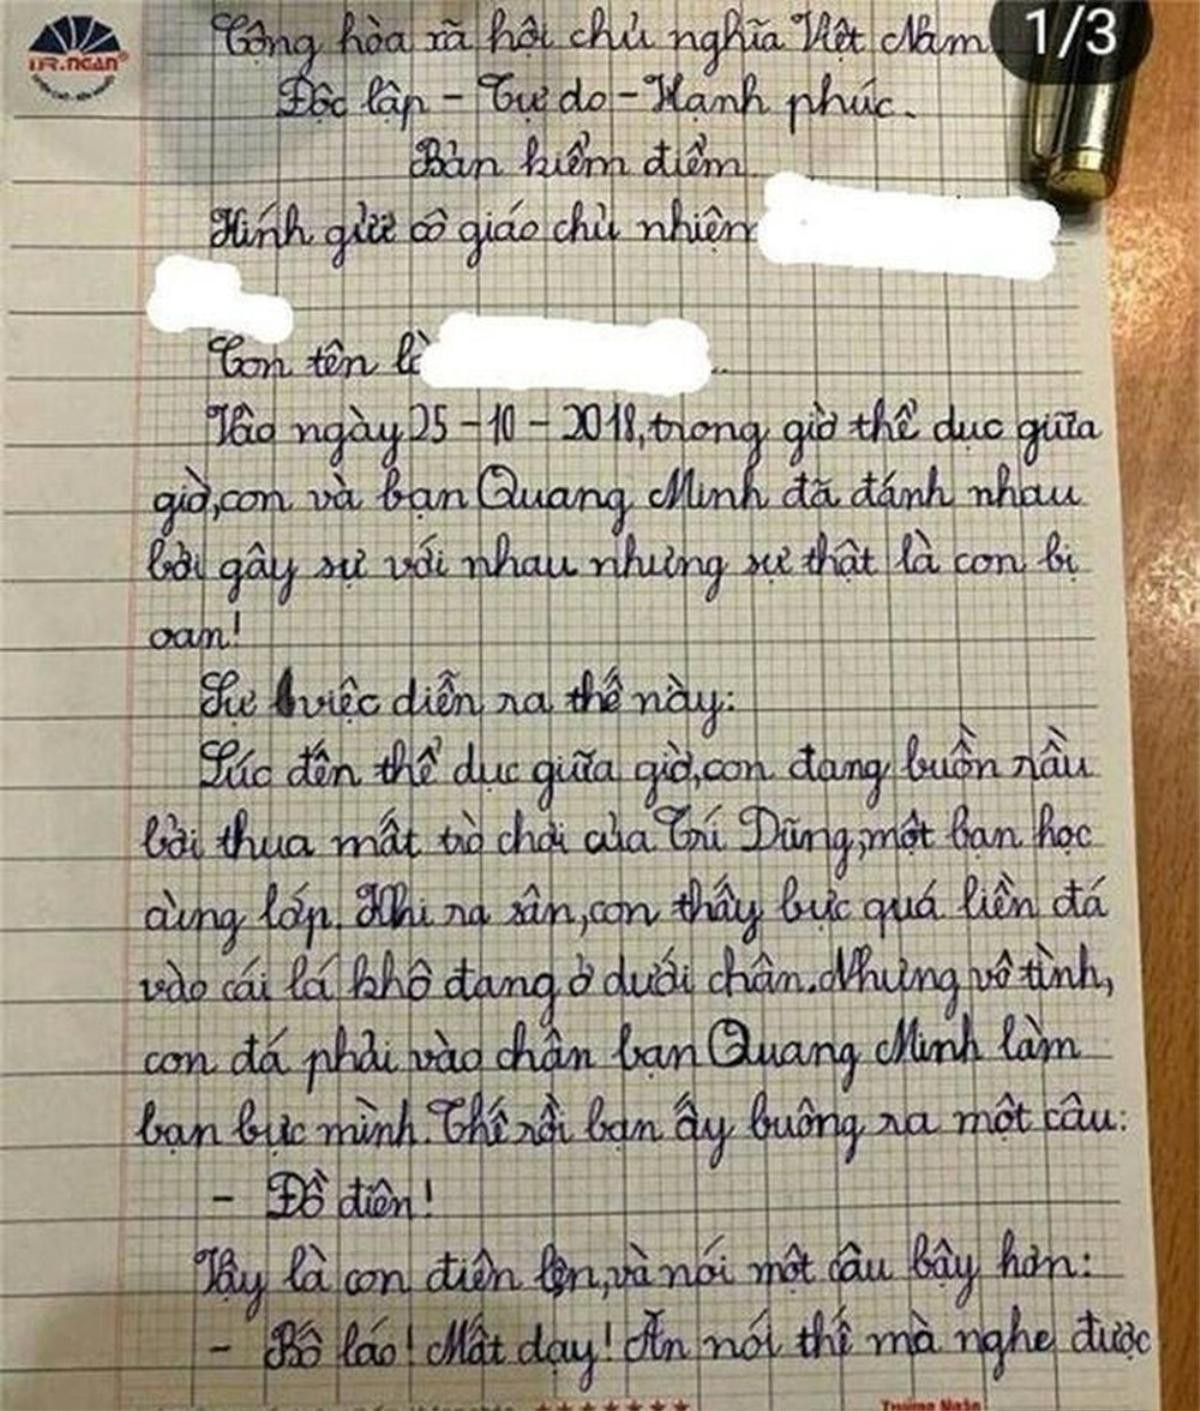 1/3
MR.NGAN®
Cộng hòa xã hội chủ nghĩa Việt Nam
Độc lập - Tự do - Hạnh phúc.
Bản kiểm điểm
Kính gửi cô giáo chủ nhiệm
Con tên là
Vào ngày 25-10-2018, trong giờ thể dục giữa
giờ, con và bạn Quang Minh đã đánh nhau
bởi gây sự với nhau nhưng sự thật là con bị
oan!
Sự việc diễn ra thế này:
Lúc đến thể dục giữa giờ, con đang buồn rầu
bởi thua mất trò chơi của Trí Dũng, một bạn học
cùng lớp. Khi ra sân, con thấy bực quá liền đá
vào cái lá khô đang ở dưới chân. Nhưng vô tình,
con đá phải vào chân bạn Quang Minh làm
bạn bực mình. Thế rồi bạn ấy buông ra một câu:
- Đồ điên!
Vậy là con điên lên, và nói một câu bậy hơn:
- Bố láo! Mất dạy! Ăn nói thế mà nghe được